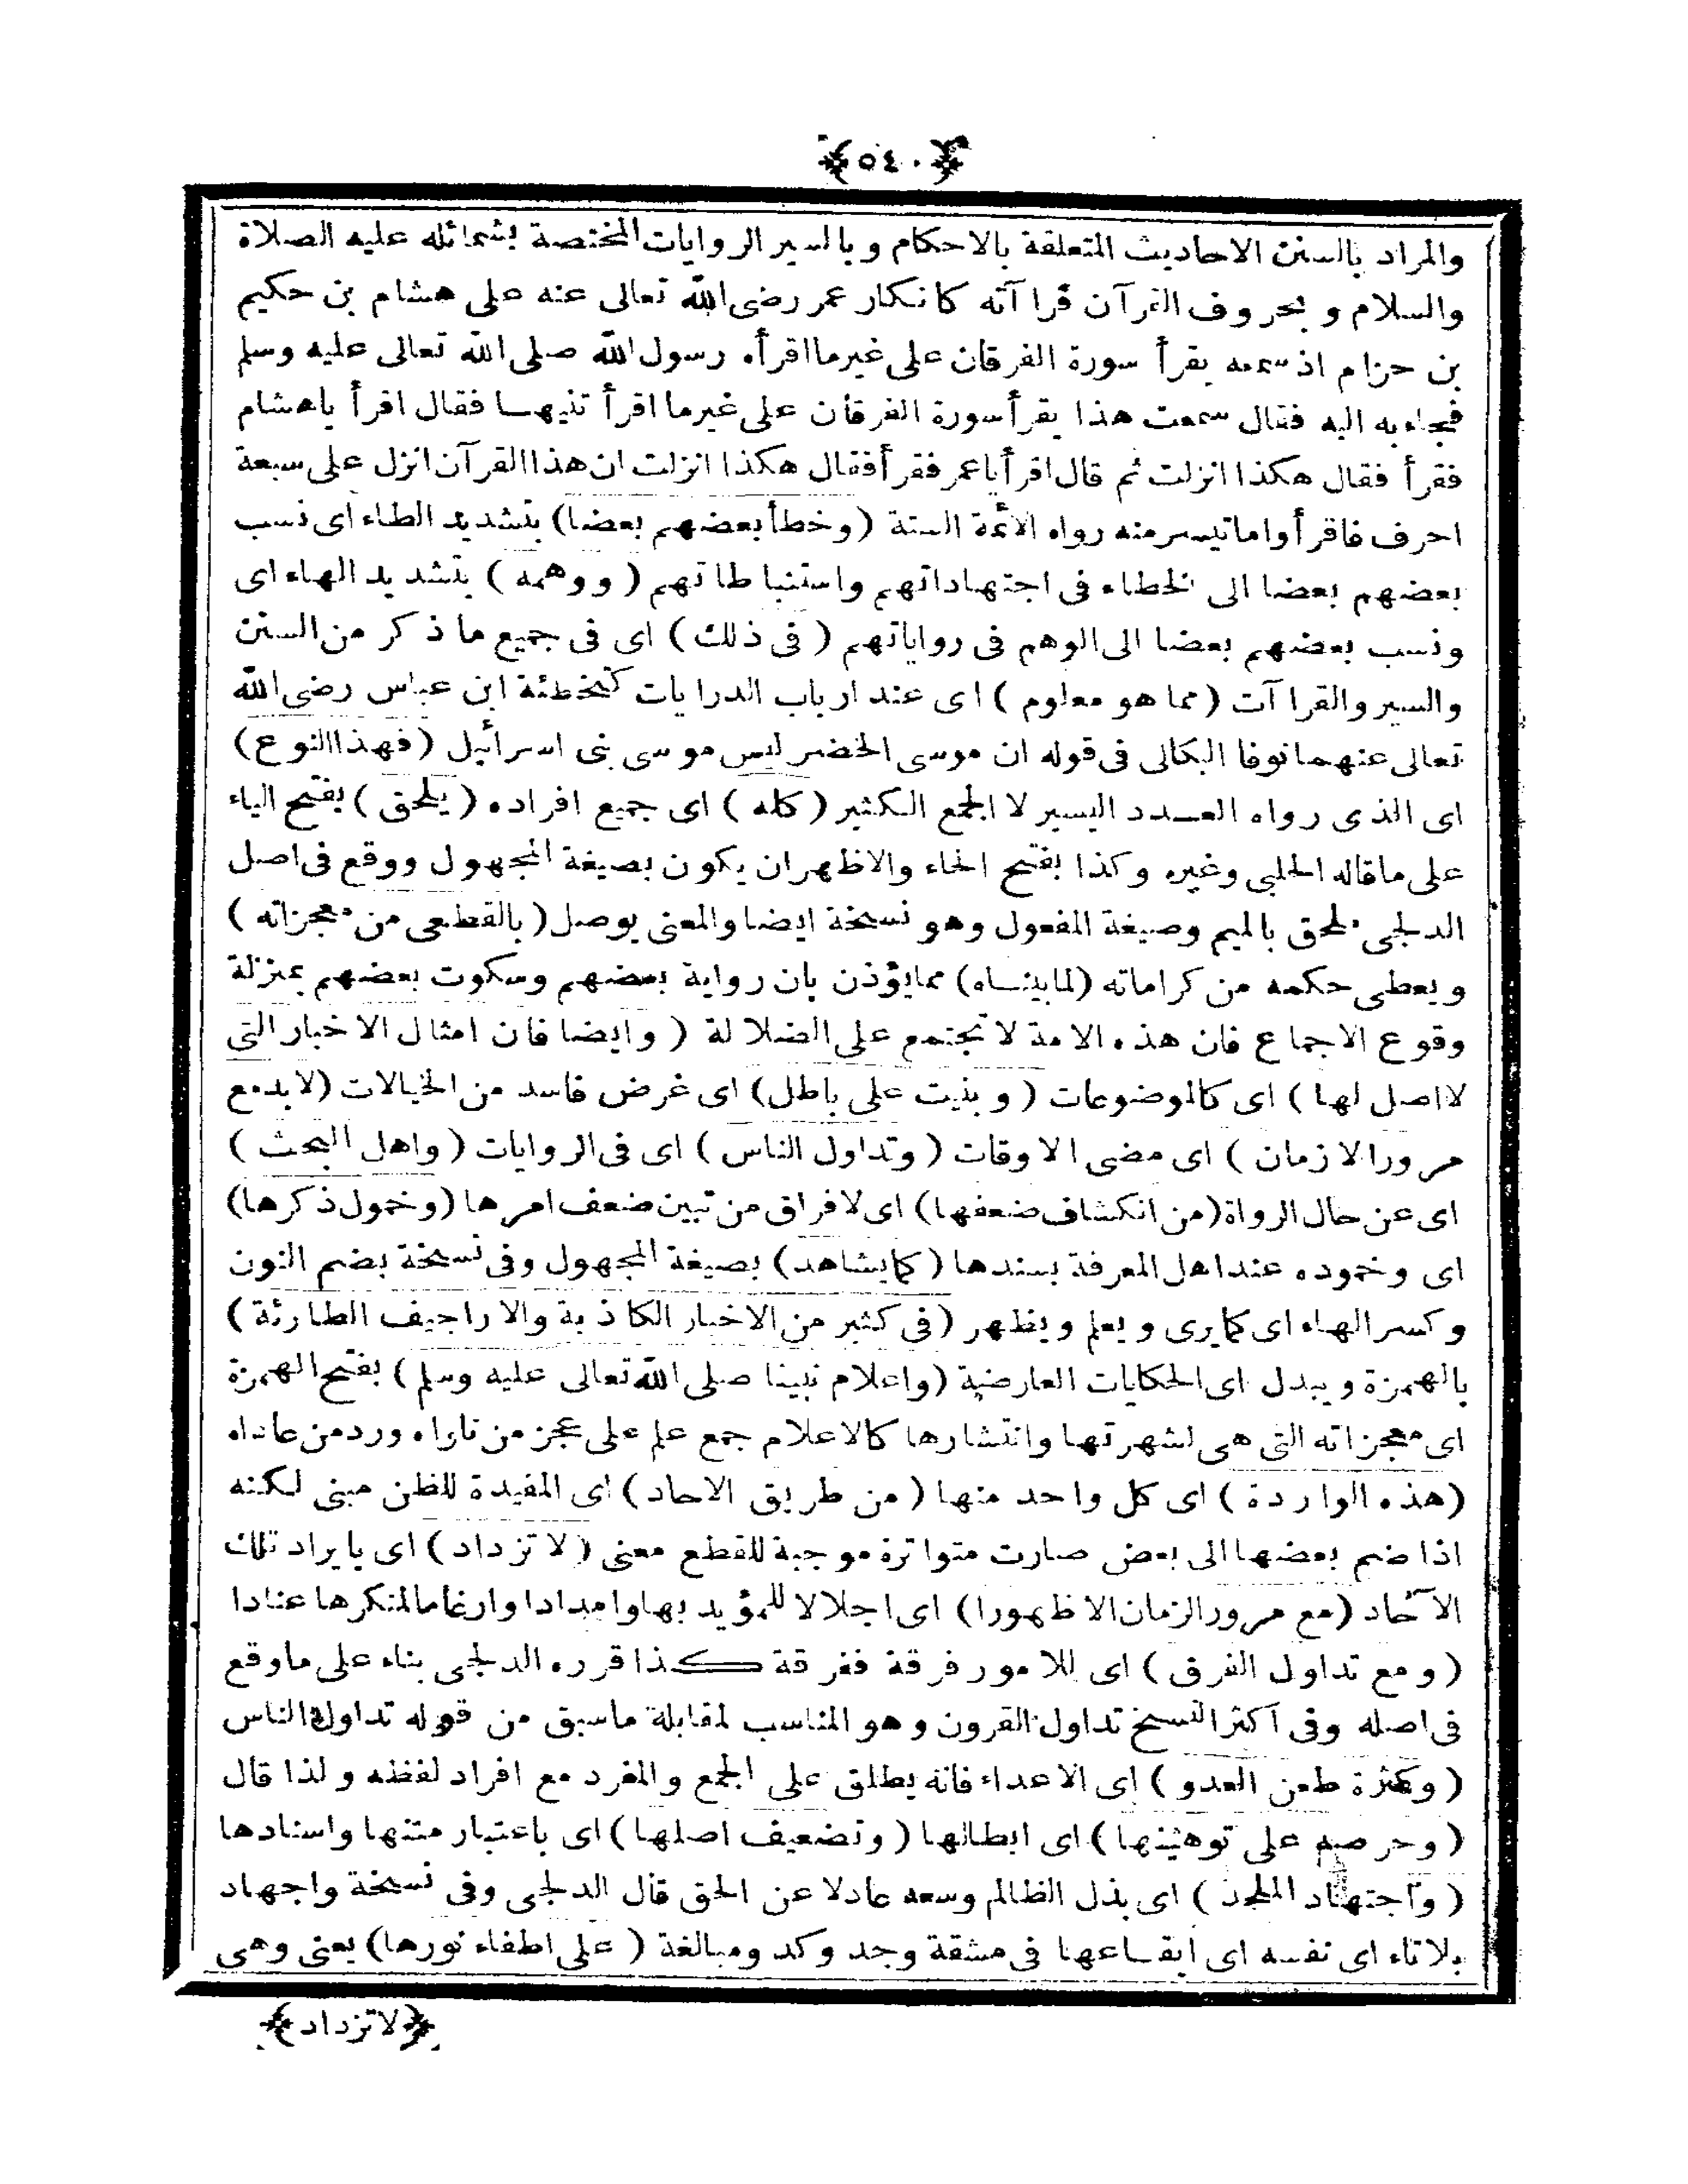 ﴿٥٤٠﴾
والمراد بالسنن الاحاديث المتعلقة بالاحكام وبالسير الروايات المختصة بشمائله عليه الصلاة
والسلام وبحروف القرآن قراآته كانكار عمر رضى الله تعالى عنه على هشام بن حكيم
بن حزام اذ سمعه يقرأ سورة الفرقان على غير ما اقرأه رسول الله صلى الله تعالى عليه وسلم
فجاء به اليه فقال سمعت هذا يقرأ سورة الفرقان على غير ما اقرأ تنيها فقال اقرأ ياهشام
فقرأ فقال هكذا انزلت ثم قال اقرأ ياعمر فقرأ فقال هكذا انزلت ان هذا القرآن انزل على سبعة
احرف فاقرأوا ما تيسر منه رواه الأئمة الستة (وخطأ بعضهم بعضا) بتشديد الطاء اى نسب
بعضهم بعضا الى الخطاء فى اجتهاداتهم واستنباطاتهم (ووهمه) بتشديد الهاء اى
ونسب بعضهم بعضا الى الوهم فى رواياتهم (فى ذلك) اى فى جميع ما ذكر من السنن
والسير والقراآت (مما هو معلوم) اى عند ارباب الدرايات كتخطئة ابن عباس رضى الله
تعالى عنهما نوفا البكالى فى قوله ان موسى الخضر ليس موسى بنى اسرائيل (فهذا النوع)
اى الذى رواه العدد اليسير لا الجمع الكثير (كله) اى جميع افراده (يلحق) بفتح الياء
على ما قاله الحلبى وغيره وكذا بفتح الحاء والاظهر ان يكون بصيغة المجهول ووقع فى اصل
الدلجى ملحق بالميم وصيغة المفعول وهو نسخة ايضا والمعنى يوصل (بالقطعى من معجزاته)
ويعطى حكمه من كراماته (لما بيناه) مما يؤذن بان رواية بعضهم وسكوت بعضهم بمنزلة
وقوع الاجماع فان هذه الامة لا تجتمع على الضلالة (وايضا فان امثال الاخبار التى
لا اصل لها) اى كالموضوعات (وبنيت على باطل) اى غرض فاسد من الخيالات (لا بد مع
مرور الازمان) اى مضى الاوقات (وتداول الناس) اى فى الروايات (واهل البحث)
اى عن حال الرواة (من انكشاف ضعفها) اى لا فراق من تبين ضعف امرها (وخمول ذكرها)
اى وخموده عند اهل المعرفة بسندها (كما يشاهد) بصيغة المجهول وفى نسخة بضم النون
وكسر الهاء اى كما يرى ويعلم ويظهر (فى كثير من الاخبار الكاذبة والاراجيف الطارئة)
بالهمزة ويبدل اى الحكايات العارضية (واعلام نبينا صلى الله تعالى عليه وسلم) بفتح الهمزة
اى معجزاته التى هى لشهرتها وانتشارها كالاعلام جمع علم على عجز من ناراه ورد من عاداه
(هذه الواردة) اى كل واحد منها (من طريق الاحاد) اى المفيدة للظن مبنى لكنه
اذا ضم بعضها الى بعض صارت متواترة موجبة للقطع معنى (لا تزداد) اى بايراد تلك
الآحاد (مع مرور الزمان الا ظهورا) اى اجلالا للمؤيد بها وامدادا وارغاما لمنكرها عنادا
(ومع تداول الفرق) اى للامور فرقة ففرقة كذا قرره الدلجى بناء على ما وقع
فى اصله وفى اكثر النسخ تداول القرون وهو المناسب لمقابلة ما سبق من قوله تداول الناس
(وكثرة طعن العدو) اى الاعداء فانه يطلق على الجمع والمفرد مع افراد لفظه ولذا قال
(وحرصه على توهينها) اى ابطالها (وتضعيف اصلها) اى باعتبار متنها واسنادها
(واجتهاد الملحد) اى بذل الظالم وسعه عادلا عن الحق قال الدلجى وفى نسخة واجهاد
بلا تاء اى نفسه اى ايقاعها فى مشقة وجد وكد ومبالغة (على اطفاء نورها) يعنى وهى
﴿لا تزداد﴾